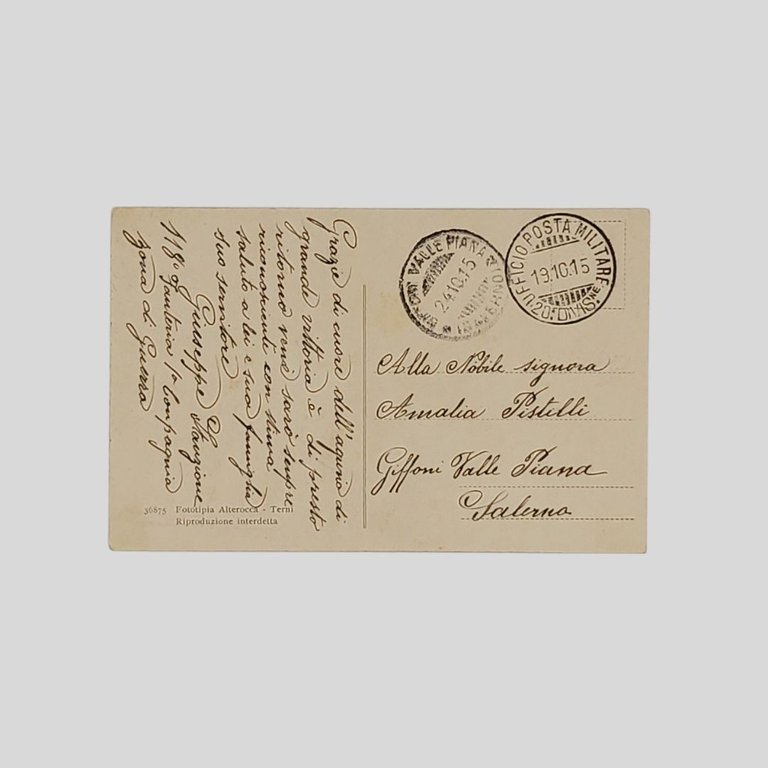 Grazie di cuore dell'agurio di
grande vittoria è di presto
ritorno venà sarò sempre
riconoscendi con stima
saluto a lei e sua famiglia
suo servitore
Giuseppe Stangione
118° fanteria 1ª Compagnia
Zona di Guerra
36875 Fototipia Alterocca - Terni
Riproduzione interdetta
VALLE PIANA
24.10.15
UFFICIO POSTA MILITARE
19.10.15
20ª DIVISne
Alla Nobile signora
Amalia Pistilli
Giffoni Valle Piana
Salerno